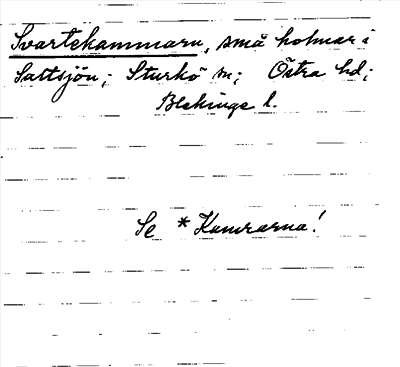 Svartekammarn, små holmar i
Saltsjön; Sturkö sn; Östra hd;
Blekinge l.
Se *Kamrarna!